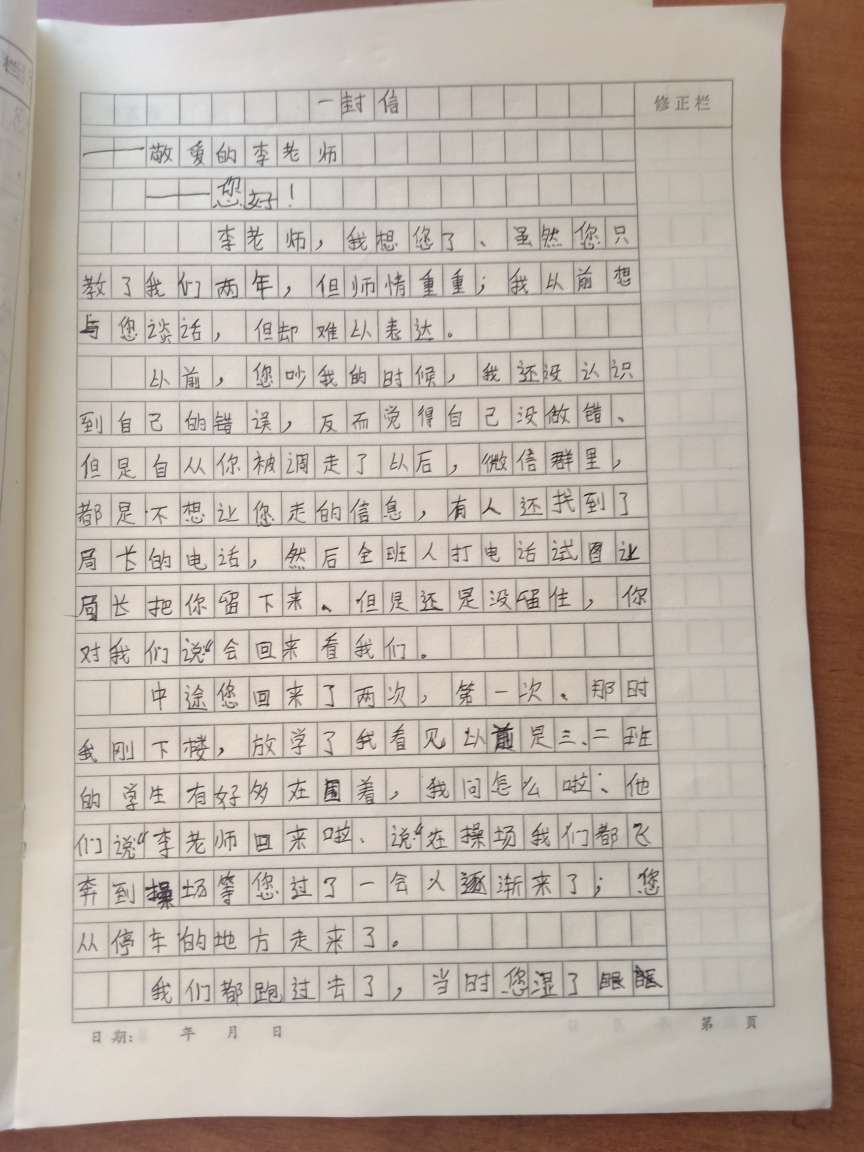 一封信
修正栏
——敬爱的李老师
——您好！
李老师，我想您了、虽然您只
教了我们两年，但师情重重；我以前想
与您谈话，但却难以表达。
以前，您吵我的时候，我还没认识
到自己的错误，反而觉得自己没做错、
但是自从你被调走了以后，微信群里，
都是不想让您走的信息，有人还找到了
局长的电话，然后全班人打电话试图让
局长把你留下来、但是还是没留住，你
对我们说“会回来看我们。
中途您回来了两次，第一次、那时
我刚下楼，放学了我看见以前是三、二班
的学生有好多在围着，我问怎么啦、他
们说“李老师回来啦、说“在操场我们都飞
奔到操场等您过了一会人逐渐来了；您
从停车的地方走来了。
我们都跑过去了，当时您湿了眼眶
日期： 年 月 日
第 页